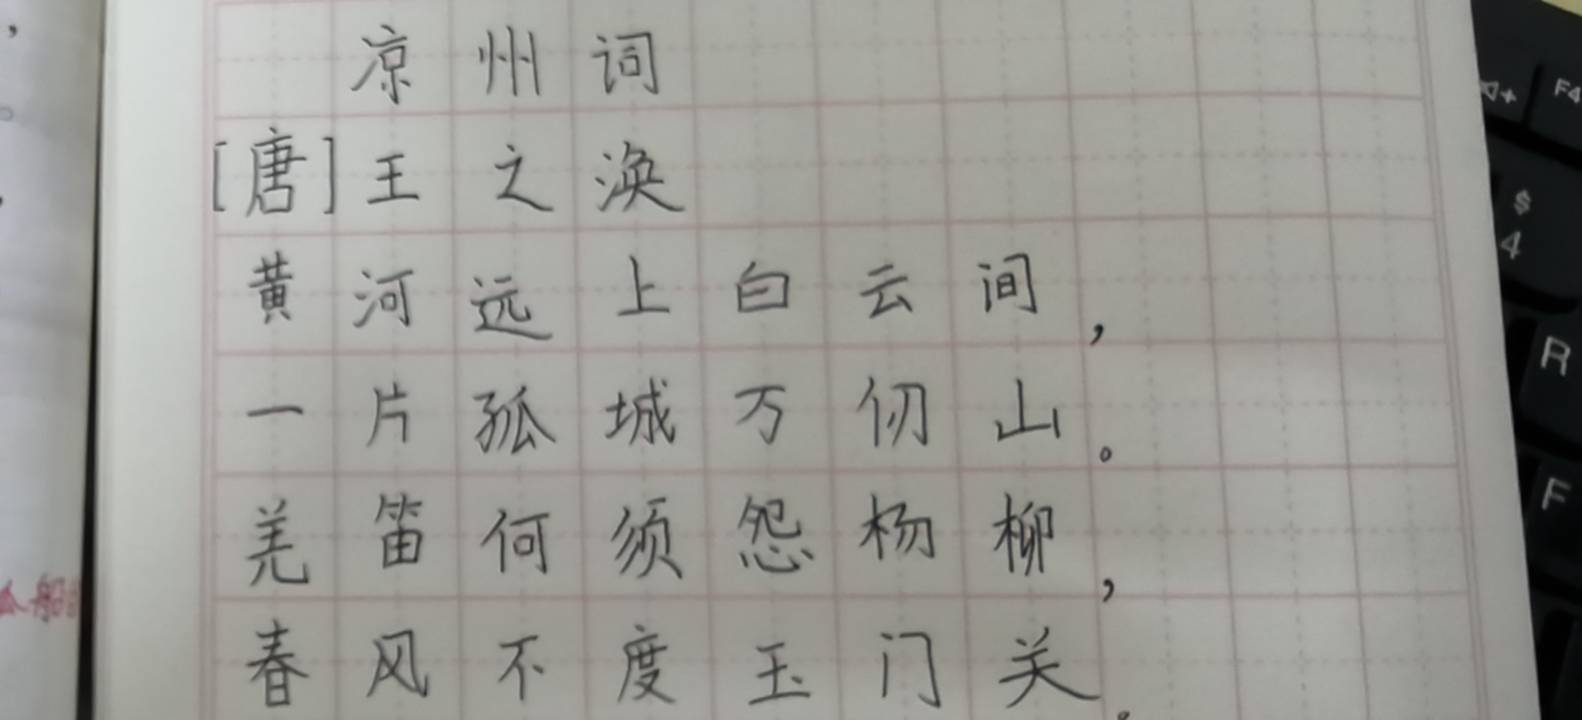 凉州词
[唐]王之涣
黄河远上白云间，
一片孤城万仞山。
羌笛何须怨杨柳，
春风不度玉门关。
F4
$
4
R
F